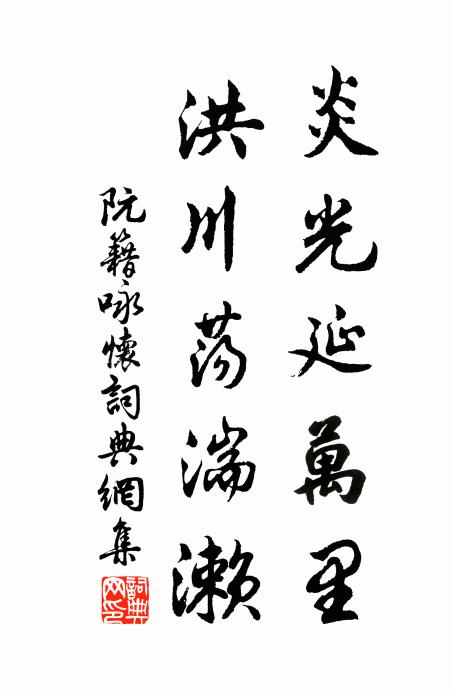 炎光延萬里
洪川荡湍濑
阮籍咏懷詞典網集
詞典网印